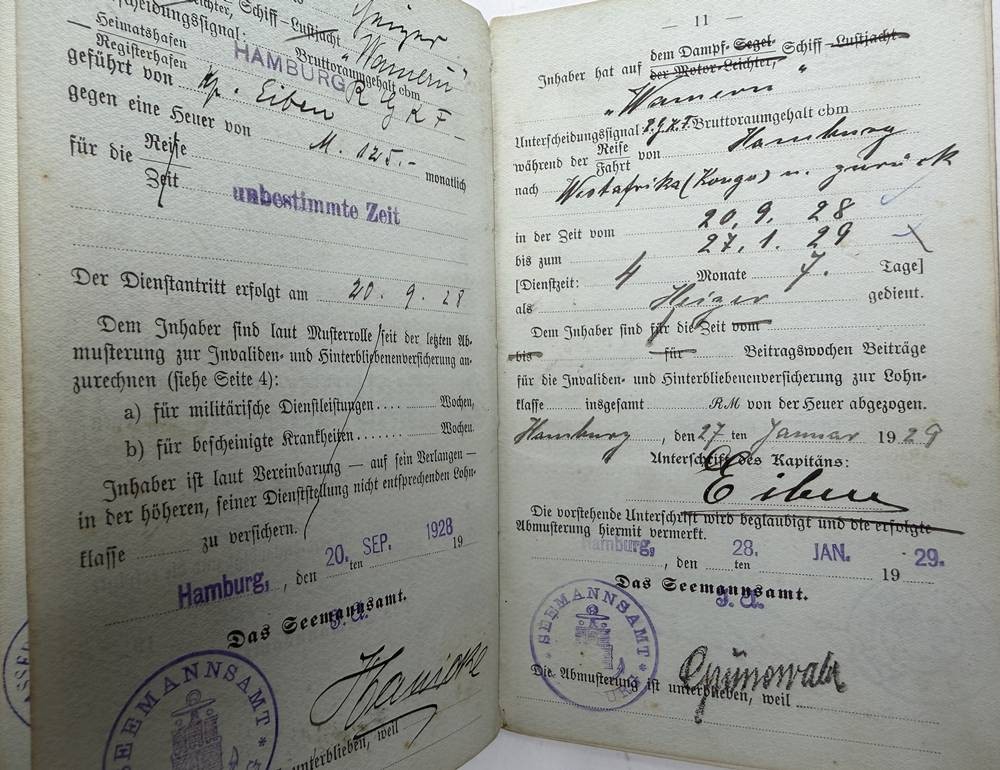 Heizer
leichter, Schiff – Lustjacht
scheidungssignal: „Wameru“
Heimatshafen
Registerhafen HAMBURG Bruttoraumgehalt cbm
R G K F
geführt von Kp. Eiben
gegen eine Heuer von M. 125.- monatlich
für die Reise
Zeit unbestimmte Zeit
Der Dienstantritt erfolgt am 20. 9. 28
Dem Inhaber sind laut Musterrolle seit der letzten Ab-
musterung zur Invaliden- und Hinterbliebenenversicherung an-
zurechnen (siehe Seite 4):
a) für militärische Dienstleistungen .... Wochen,
b) für bescheinigte Krankheiten ....... Wochen.
Inhaber ist laut Vereinbarung — auf sein Verlangen —
in der höheren, seiner Dienststellung nicht entsprechenden Lohn-
klasse zu versichern.
Hamburg, , den 20. SEP. 1928 ten 19
Das Seemannsamt.
J. A.
SEEMANNSAMT
unterblieben, weil
— 11 —
Inhaber hat auf dem Dampf- Segel- Schiff – Lustjacht
der Motor-Leichter,
„Wameru“
Unterscheidungssignal R.G.K.F. Bruttoraumgehalt cbm
während der Reise
Fahrt von Hamburg
nach Westafrika (Kongo) u. zurück
in der Zeit vom 20. 9. 28
bis zum 27. 1. 29
[Dienstzeit: 4 Monate 7. Tage]
als Heizer gedient.
Dem Inhaber sind für die Zeit vom
bis für Beitragswochen Beiträge
für die Invaliden- und Hinterbliebenenversicherung zur Lohn-
klasse insgesamt RM von der Heuer abgezogen.
Hamburg, den 27 ten Januar 1929
Unterschrift des Kapitäns:
Eiben
Die vorstehende Unterschrift wird beglaubigt und die erfolgte
Abmusterung hiermit vermerkt.
Hamburg, , den 28. ten JAN. 19 29.
Das Seemannsamt.
J. A.
SEEMANNSAMT
Grünewald
Die Abmusterung ist unterblieben, weil